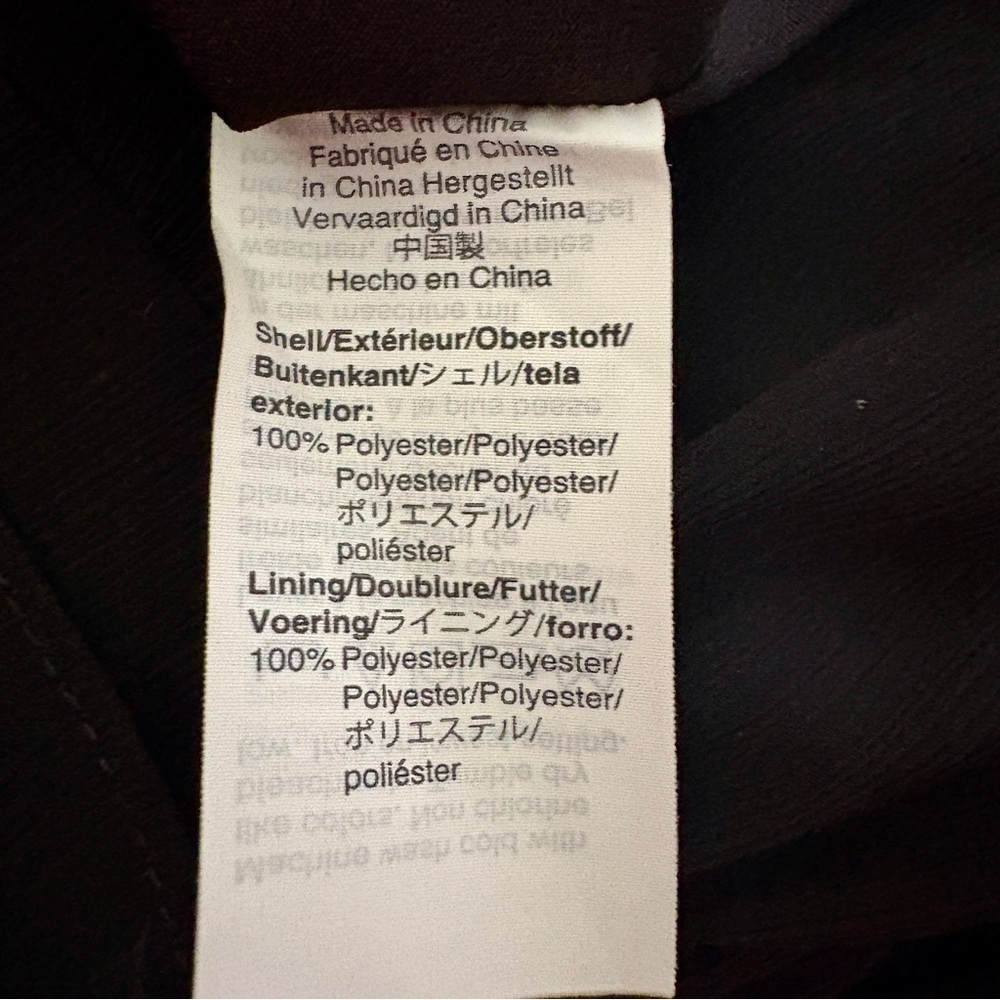 Made in China
Fabriqué en Chine
in China Hergestellt
Vervaardigd in China
中国製
Hecho en China
Shell/Extérieur/Oberstoff/
Buitenkant/シェル/tela
exterior:
100% Polyester/Polyester/
Polyester/Polyester/
ポリエステル/
poliéster
Lining/Doublure/Futter/
Voering/ライニング/forro:
100% Polyester/Polyester/
Polyester/Polyester/
ポリエステル/
poliéster